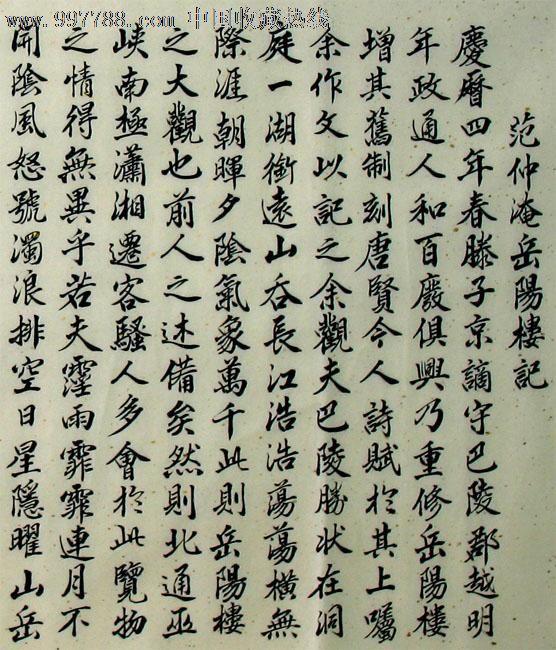 www.997788.com 中国收藏热线
范仲淹岳陽樓記
慶曆四年春滕子京謫守巴陵郡越明
年政通人和百廢俱興乃重修岳陽樓
增其舊制刻唐賢今人詩賦於其上囑
余作文以記之余觀夫巴陵勝狀在洞
庭一湖銜遠山吞長江浩浩蕩蕩橫無
際涯朝暉夕陰氣象萬千此則岳陽樓
之大觀也前人之述備矣然則北通巫
峽南極瀟湘遷客騷人多會於此覽物
之情得無異乎若夫霪雨霏霏連月不
開陰風怒號濁浪排空日星隱曜山岳